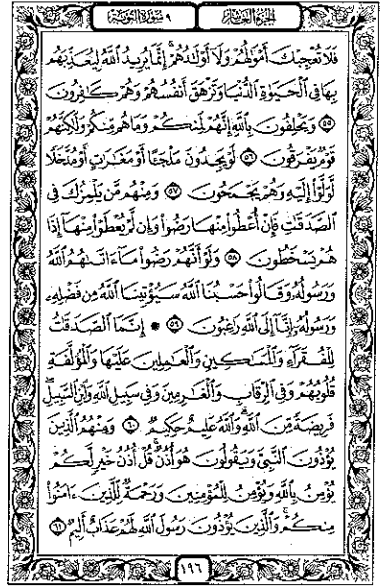 الجزء العاشر ٩ سورة التوبة
فَلَا تُعْجِبْكَ أَمْوَٰلُهُمْ وَلَآ أَوْلَٰدُهُمْ ۚ إِنَّمَا يُرِيدُ ٱللَّهُ لِيُعَذِّبَهُم
بِهَا فِى ٱلْحَيَوٰةِ ٱلدُّنْيَا وَتَزْهَقَ أَنفُسُهُمْ وَهُمْ كَٰفِرُونَ
٥٥ وَيَحْلِفُونَ بِٱللَّهِ إِنَّهُمْ لَمِنكُمْ وَمَا هُم مِّنكُمْ وَلَٰكِنَّهُمْ
قَوْمٌ يَفْرَقُونَ ٥٦ لَوْ يَجِدُونَ مَلْجَـًٔا أَوْ مَغَٰرَٰتٍ أَوْ مُدَّخَلًا
لَّوَلَّوْا۟ إِلَيْهِ وَهُمْ يَجْمَحُونَ ٥٧ وَمِنْهُم مَّن يَلْمِزُكَ فِى
ٱلصَّدَقَٰتِ فَإِنْ أُعْطُوا۟ مِنْهَا رَضُوا۟ وَإِن لَّمْ يُعْطَوْا۟ مِنْهَآ إِذَا
هُمْ يَسْخَطُونَ ٥٨ وَلَوْ أَنَّهُمْ رَضُوا۟ مَآ ءَاتَىٰهُمُ ٱللَّهُ
وَرَسُولُهُۥ وَقَالُوا۟ حَسْبُنَا ٱللَّهُ سَيُؤْتِينَا ٱللَّهُ مِن فَضْلِهِۦ
وَرَسُولُهُۥٓ إِنَّآ إِلَى ٱللَّهِ رَٰغِبُونَ ٥٩ إِنَّمَا ٱلصَّدَقَٰتُ
لِلْفُقَرَآءِ وَٱلْمَسَٰكِينِ وَٱلْعَٰمِلِينَ عَلَيْهَا وَٱلْمُؤَلَّفَةِ
قُلُوبُهُمْ وَفِى ٱلرِّقَابِ وَٱلْغَٰرِمِينَ وَفِى سَبِيلِ ٱللَّهِ وَٱبْنِ ٱلسَّبِيلِ ۖ
فَرِيضَةً مِّنَ ٱللَّهِ ۗ وَٱللَّهُ عَلِيمٌ حَكِيمٌ ٦٠ وَمِنْهُمُ ٱلَّذِينَ
يُؤْذُونَ ٱلنَّبِىَّ وَيَقُولُونَ هُوَ أُذُنٌ ۚ قُلْ أُذُنُ خَيْرٍ لَّكُمْ
يُؤْمِنُ بِٱللَّهِ وَيُؤْمِنُ لِلْمُؤْمِنِينَ وَرَحْمَةٌ لِّلَّذِينَ ءَامَنُوا۟
مِنكُمْ ۚ وَٱلَّذِينَ يُؤْذُونَ رَسُولَ ٱللَّهِ لَهُمْ عَذَابٌ أَلِيمٌ ٦١
١٩٦